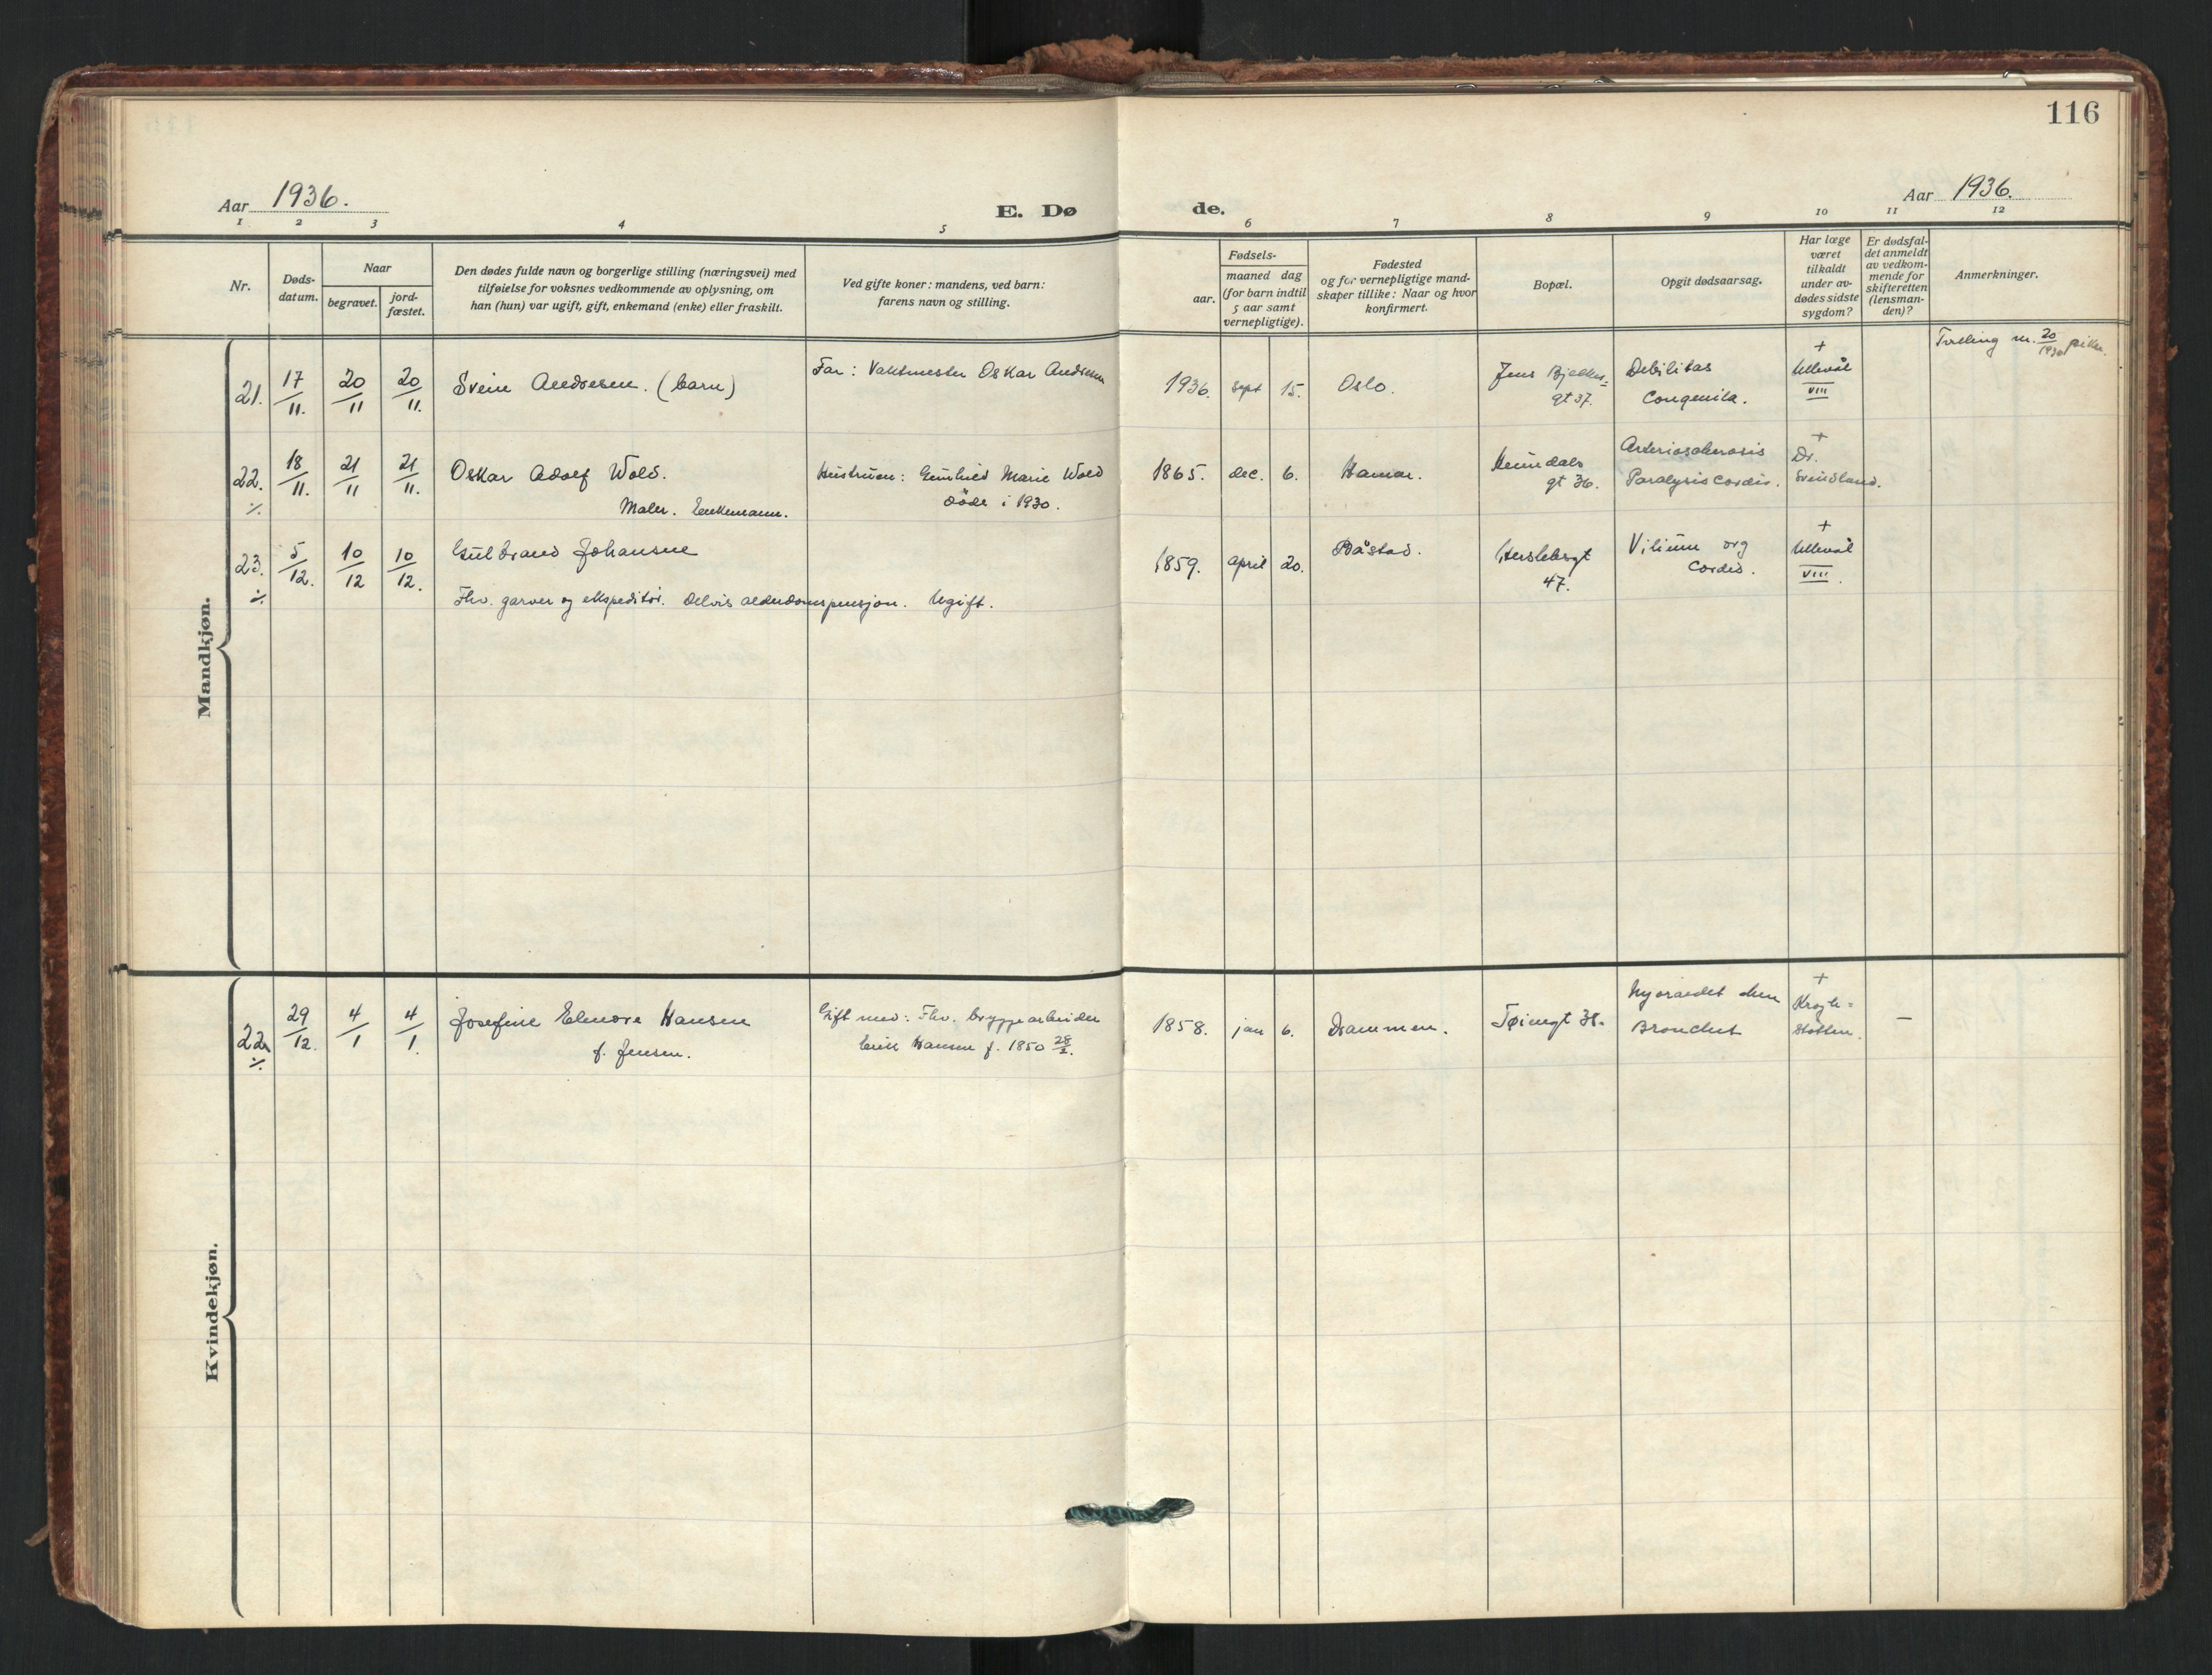 116
Aar 1936.
E. Dø de.
Aar 1936.
1 2 3 4 5 6 7 8 9 10 11 12
Nr.
Døds-
datum.
Naar
begravet.
jord-
fæstet.
Den dødes fulde navn og borgerlige stilling (næringsvei) med
tilføielse for voksnes vedkommende av oplysning, om
han (hun) var ugift, gift, enkemand (enke) eller fraskilt.
Ved gifte koner: mandens, ved barn:
farens navn og stilling.
Fødsels-
aar.
maaned dag
(for barn indtil
5 aar samt
vernepligtige).
Fødested
og for vernepligtige mand-
skaper tillike: Naar og hvor
konfirmert.
Bopæl.
Opgit dødsaarsag.
Har læge
været
tilkaldt
under av-
dødes sidste
sygdom?
Er dødsfal-
det anmeldt
av vedkom-
mende for
skifteretten
(lensman-
den)?
Anmerkninger.
Mandkjøn.
21. 17/11. 20/11 20/11. Svein Andresen. (barn)
Far: Vaktmester Oskar Andresen
1936. sept 15. Oslo.
Jens Bjelkes=
gt 37.
Debilitas
Congenita.
+
Ullevål
VIII
Tvilling m. 20/1936 pike.
22. 18/11. 21/11 21/11. Oskar Adolf Wold.
Maler. Enkemann.
Hustruen: Gunhild Marie Wold
døde i 1930.
1865. dec. 6. Hamar.
Heimdals
gt 36.
Arteriosclerosis
Paralysis Cordis.
+
Dr.
Svindland.
23. 5/12. 10/12 10/12. Gulbrand Johansne
Fhv. garver og ekspeditør. Delvis alderdomspensjon. Ugift.
1859. april 20. Båstad.
Herslebsgt
47.
Vitium org
Cordis.
+
Ullevål
VIII.
Kvindekjøn.
22. 29/12. 4/1 4/1. Josefine Elenore Hansen
f. Jensen.
Gift med: Fhv. bryggearbeider
Emil Hansen f. 1850 28/2.
1858. jan 6. Drammen.
Tøiengt 38.
Myocardit chron
Bronchit
+
Krogh=
støtten.
—